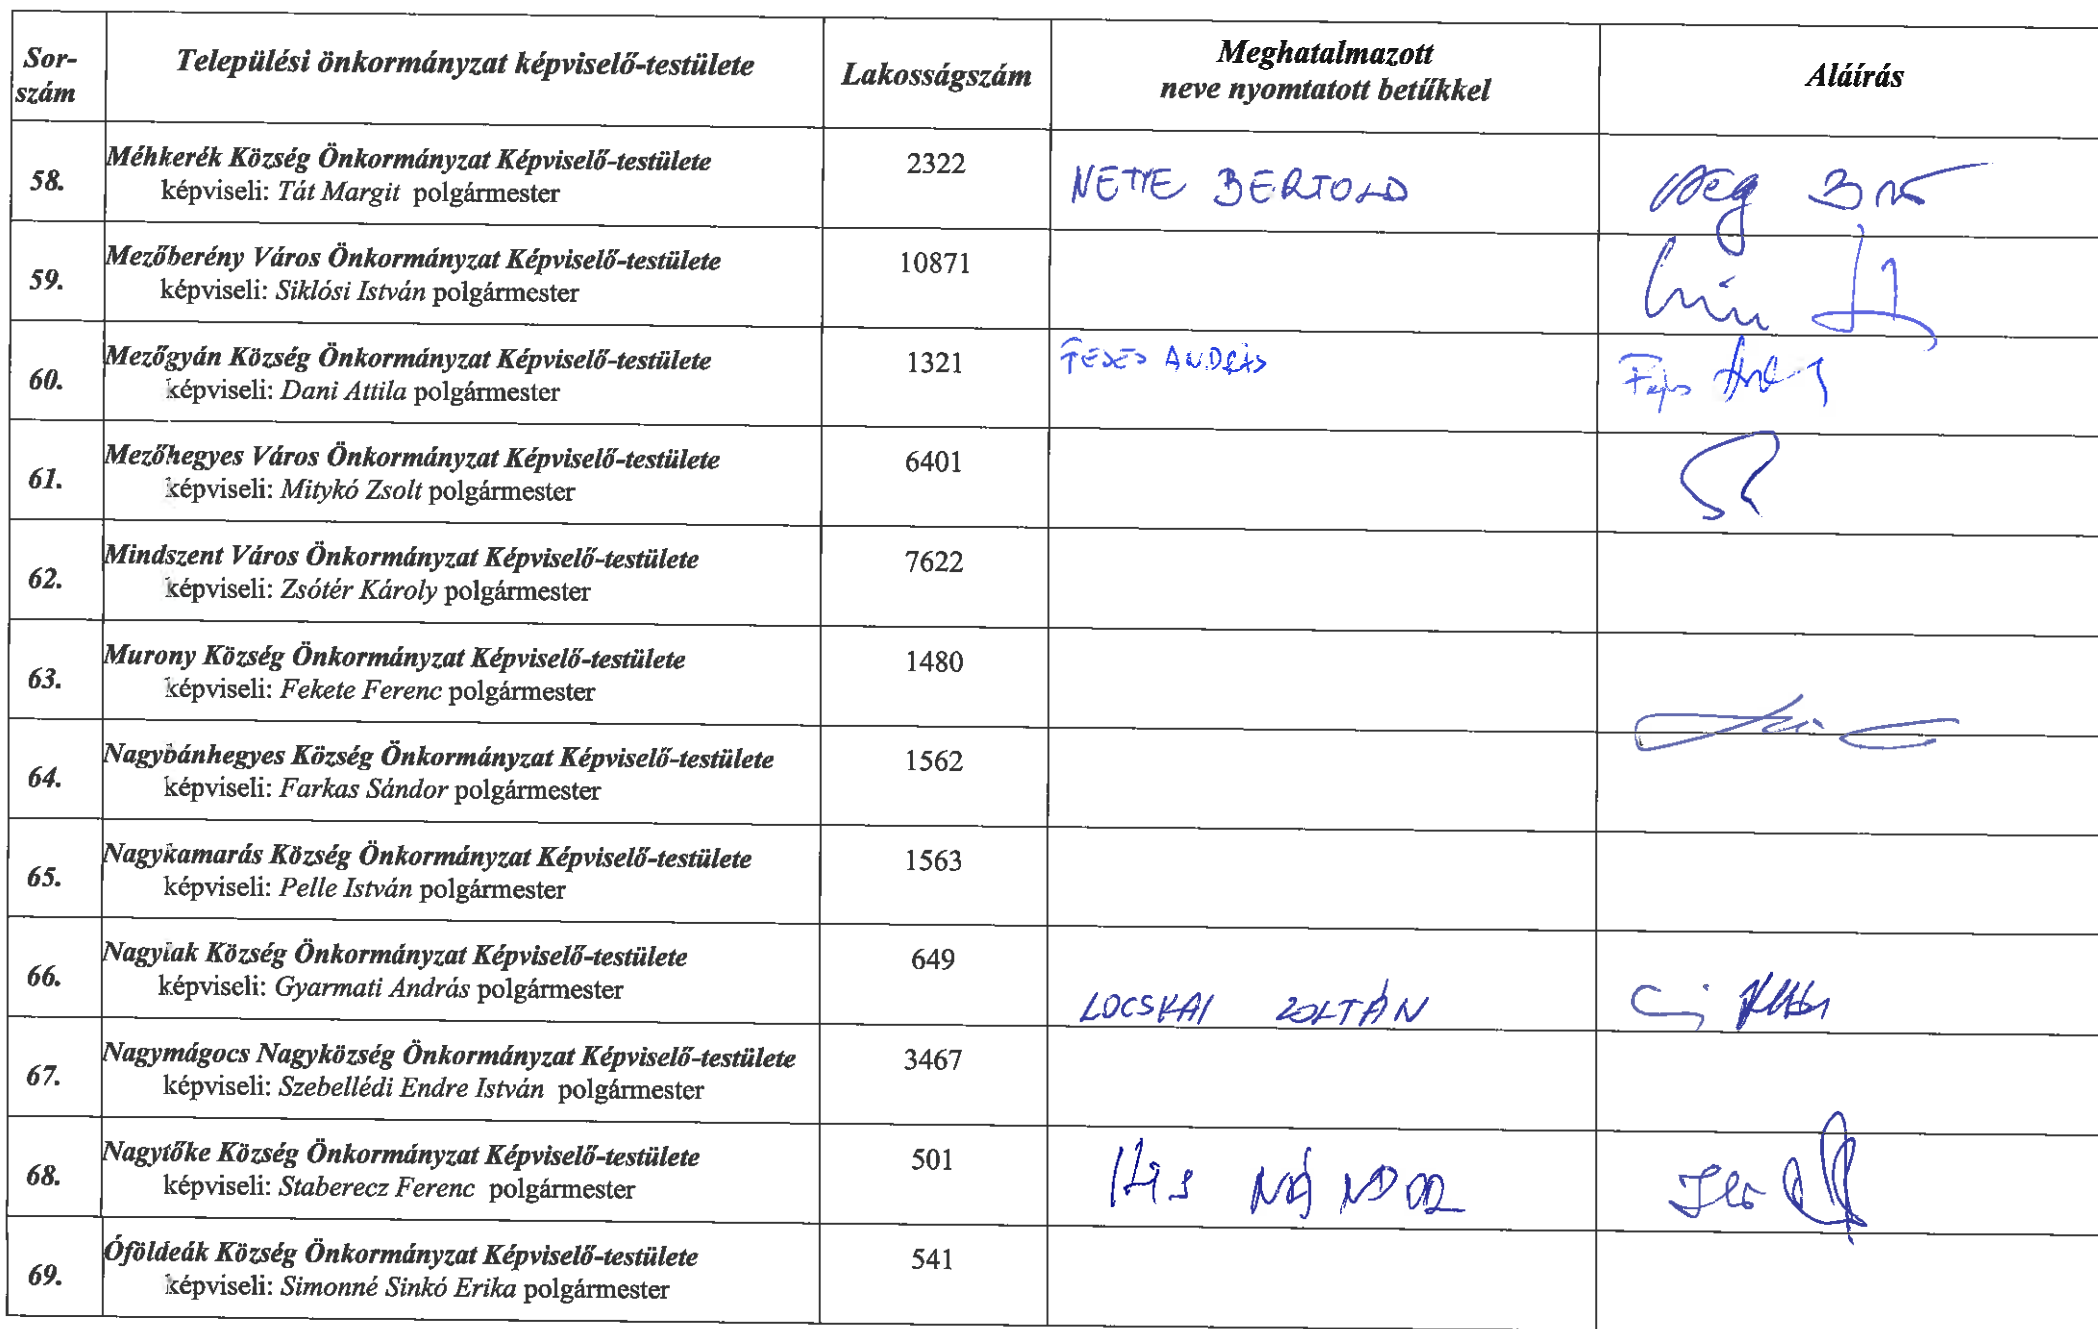 Sor-
szám
Települési önkormányzat képviselő-testülete
Lakosságszám
Meghatalmazott
neve nyomtatott betűkkel
Aláírás
58.
Méhkerék Község Önkormányzat Képviselő-testülete
képviseli: Tát Margit polgármester
2322
NETYE BERTOLD
59.
Mezőberény Város Önkormányzat Képviselő-testülete
képviseli: Siklósi István polgármester
10871
60.
Mezőgyán Község Önkormányzat Képviselő-testülete
képviseli: Dani Attila polgármester
1321
ANDRÁS
61.
Mezőhegyes Város Önkormányzat Képviselő-testülete
képviseli: Mitykó Zsolt polgármester
6401
62.
Mindszent Város Önkormányzat Képviselő-testülete
képviseli: Zsótér Károly polgármester
7622
63.
Murony Község Önkormányzat Képviselő-testülete
képviseli: Fekete Ferenc polgármester
1480
64.
Nagybánhegyes Község Önkormányzat Képviselő-testülete
képviseli: Farkas Sándor polgármester
1562
65.
Nagykamarás Község Önkormányzat Képviselő-testülete
képviseli: Pelle István polgármester
1563
66.
Nagylak Község Önkormányzat Képviselő-testülete
képviseli: Gyarmati András polgármester
649
LOCSKAI ZOLTÁN
67.
Nagymágocs Nagyközség Önkormányzat Képviselő-testülete
képviseli: Szebellédi Endre István polgármester
3467
68.
Nagytőke Község Önkormányzat Képviselő-testülete
képviseli: Staberecz Ferenc polgármester
501
NÁNDOR
69.
Óföldeák Község Önkormányzat Képviselő-testülete
képviseli: Simonné Sinkó Erika polgármester
541